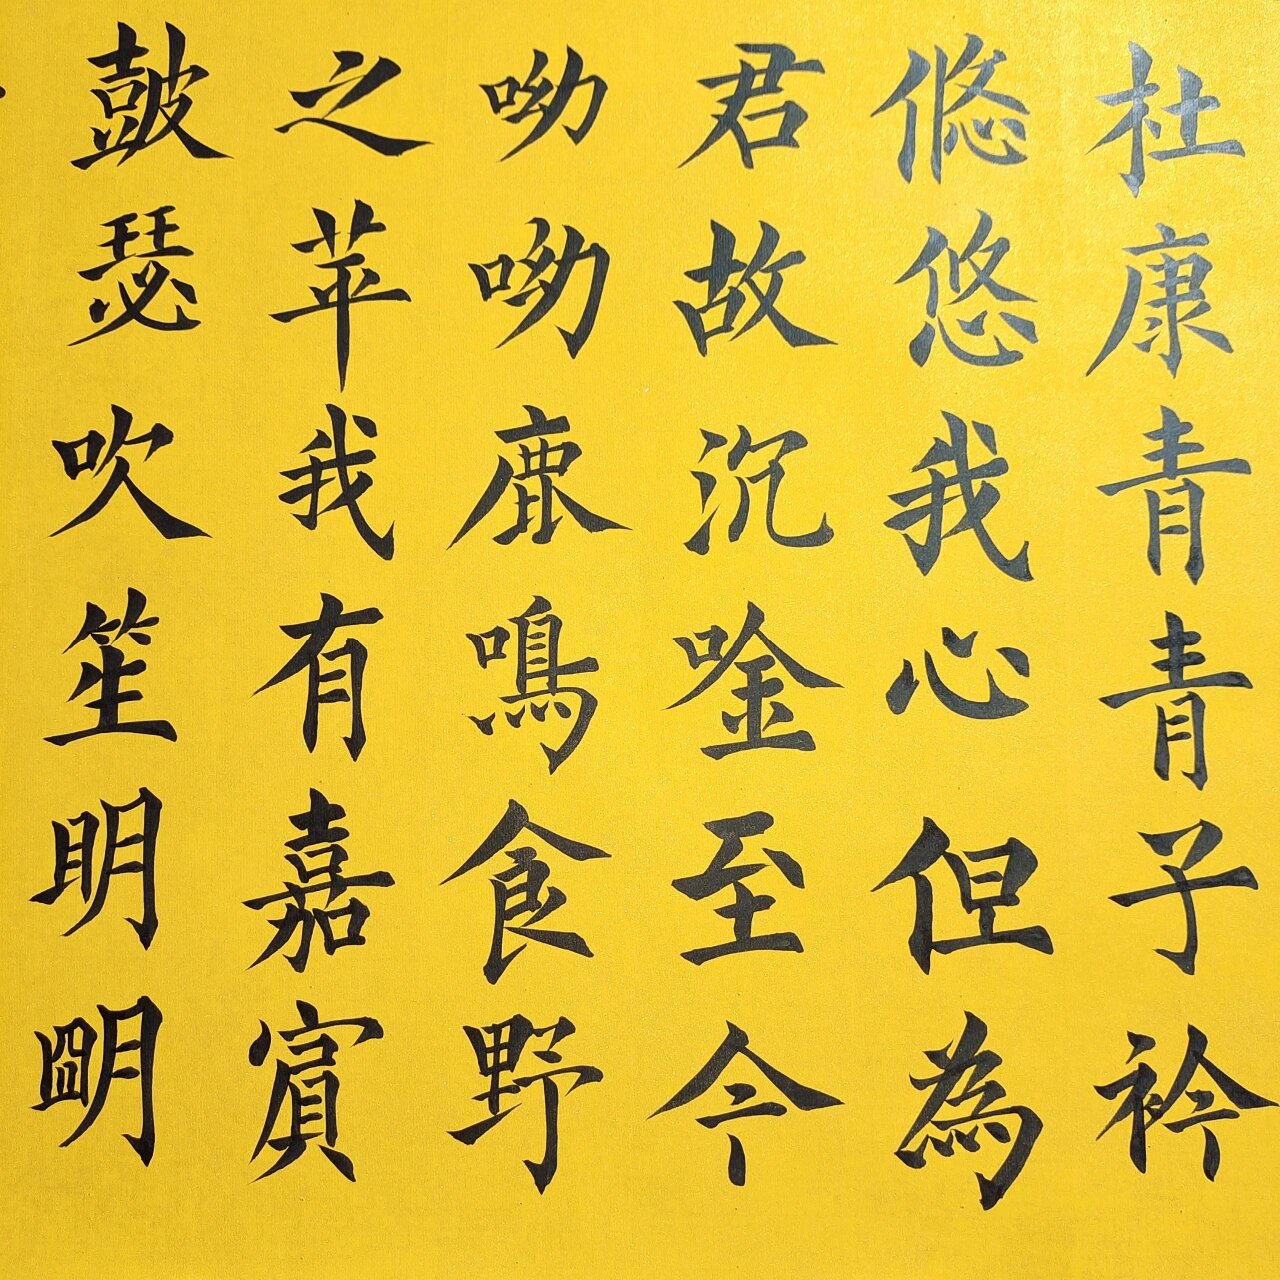 杜康青青子衿
悠悠我心但為
君故沉唫至今
呦呦鹿鳴食野
之苹我有嘉賓
鼓瑟吹笙明朙